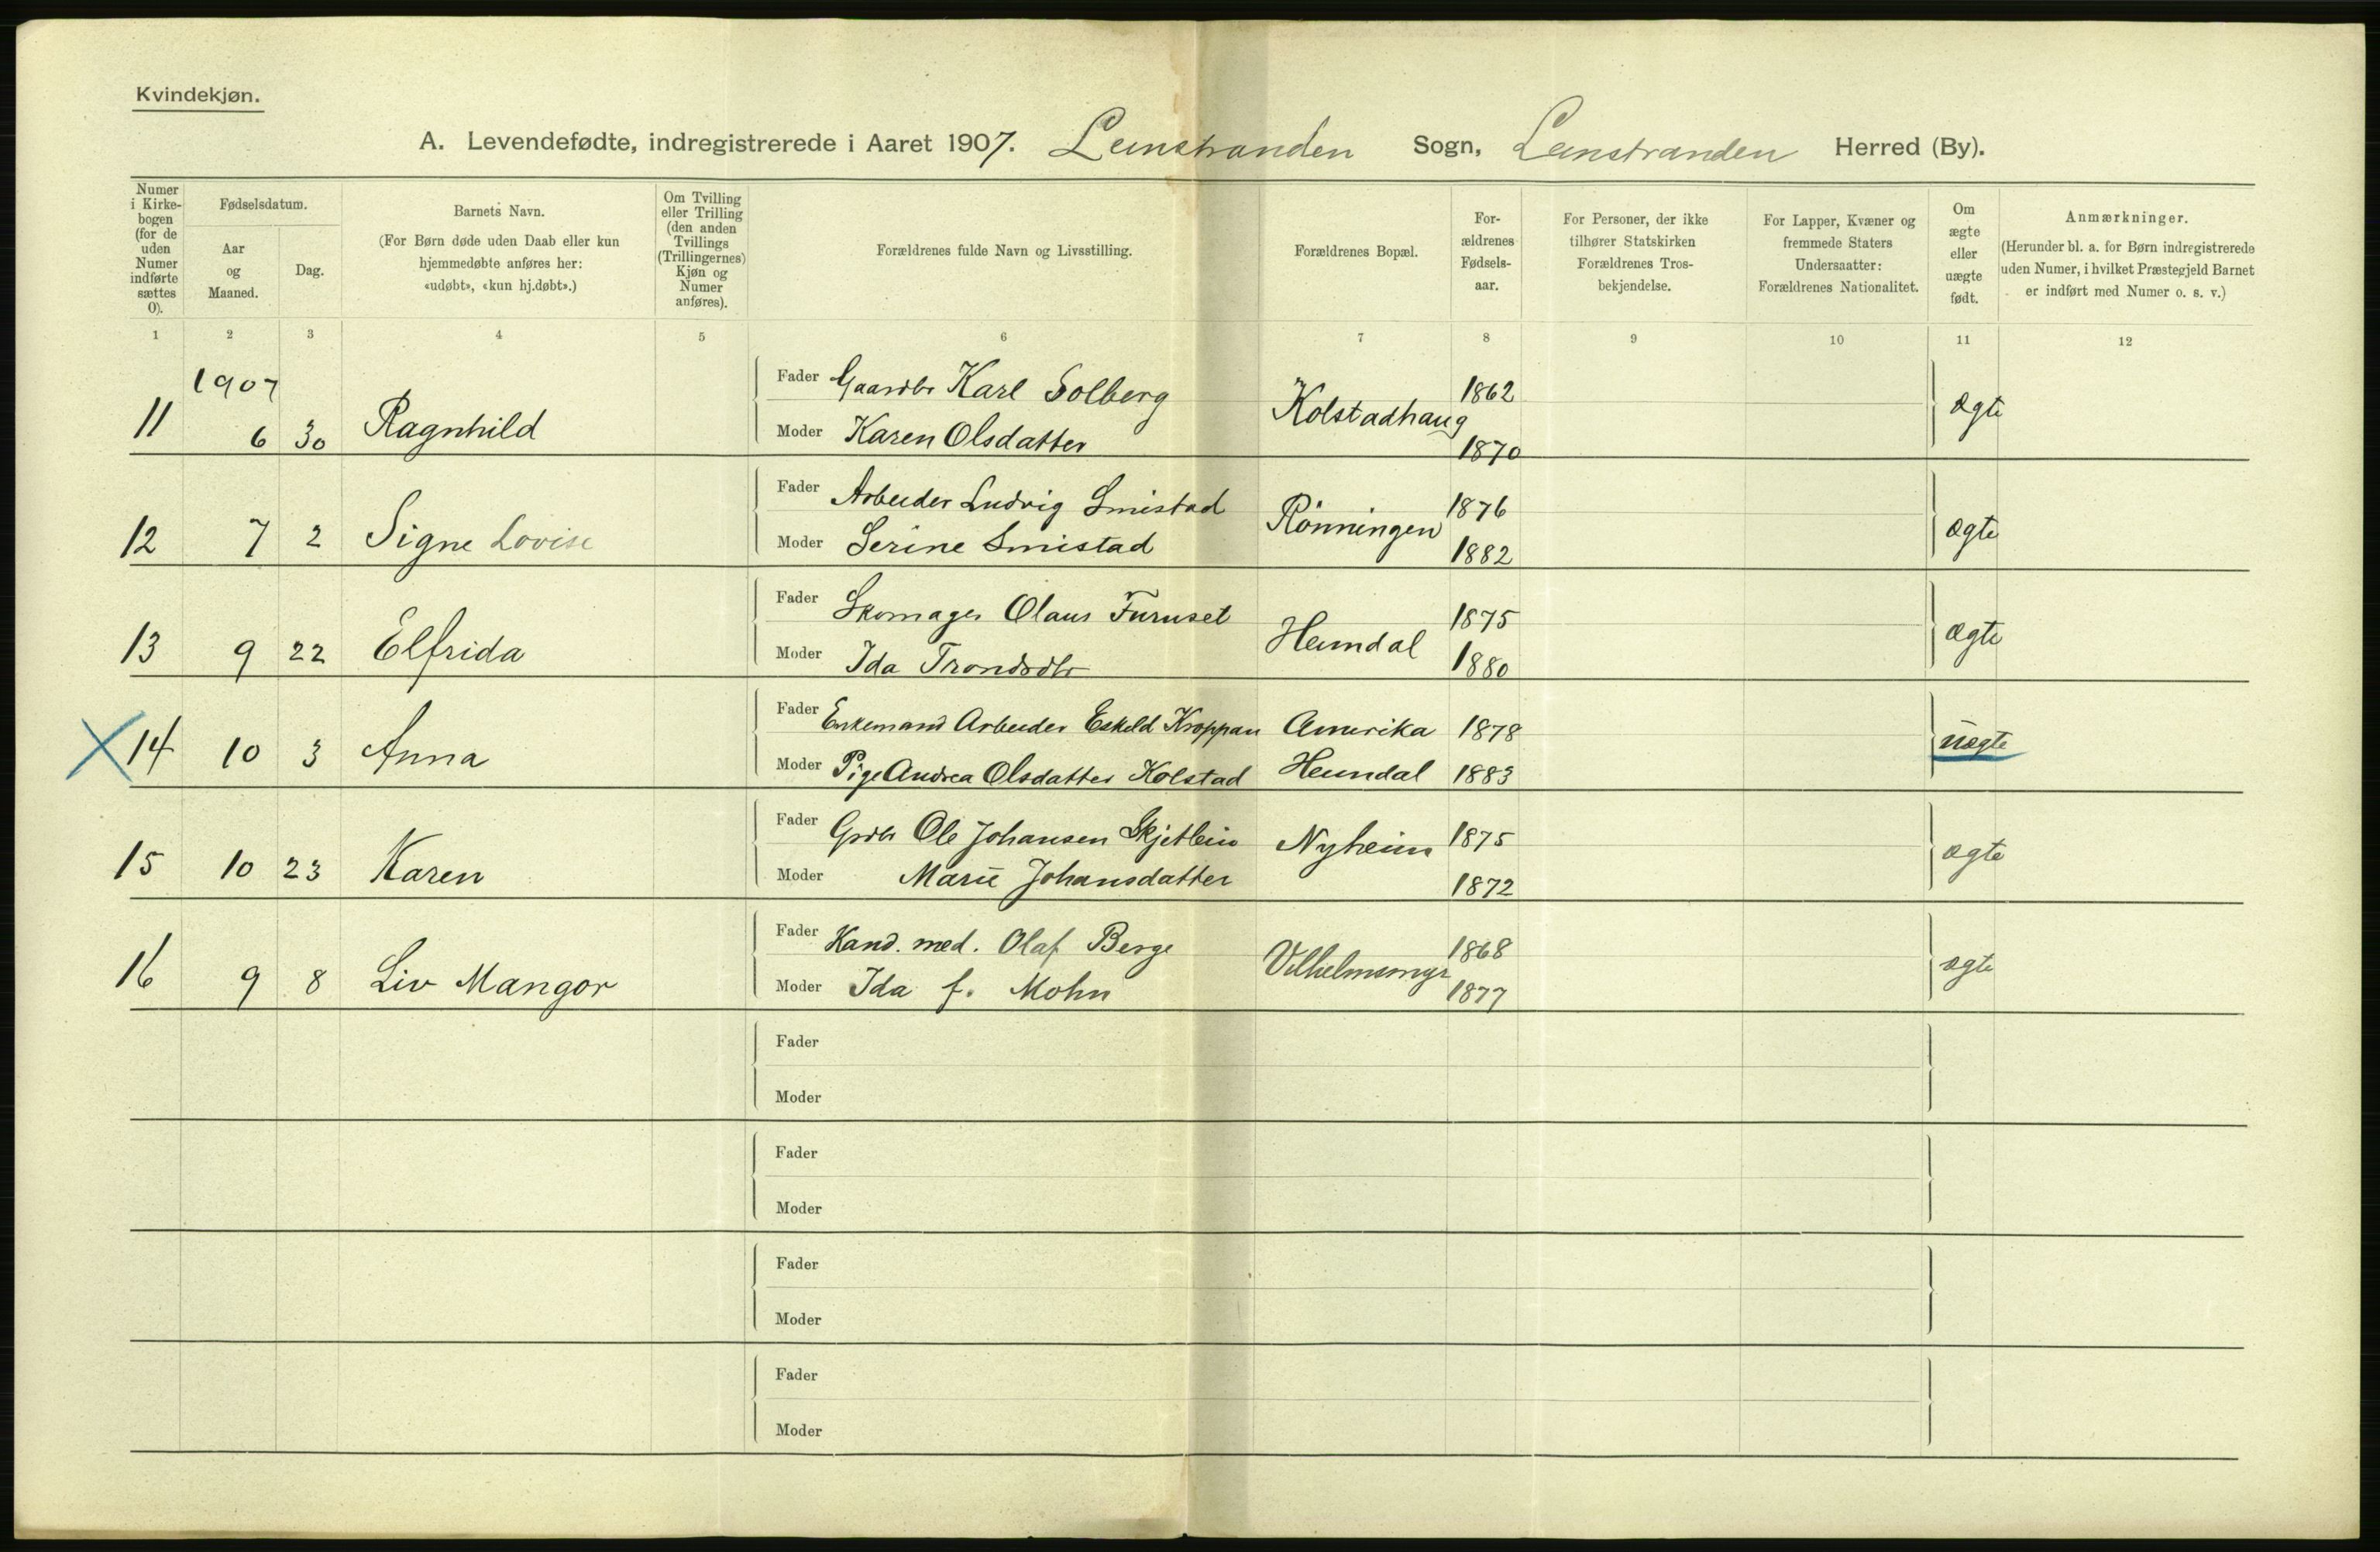 Kvindekjøn.
A. Levendefødte, indregistrerede i Aaret 1907. Leinstranden Sogn, Leinstranden Herred (By).
Numer i Kirkebogen (for de uden Numer indførte sættes 0).
Fødselsdatum.
Aar og Maaned.
Dag.
Barnets Navn.
(For Børn døde uden Daab eller kun hjemmedøbte anføres her: «udøbt», «kun hj.døbt».)
Om Tvilling eller Trilling (den anden Tvillings (Trillingernes) Kjøn og Numer anføres).
Forældrenes fulde Navn og Livsstilling.
Forældrenes Bopæl.
For-ældrenes Fødsels-aar.
For Personer, der ikke tilhører Statskirken Forældrenes Tros-bekjendelse.
For Lapper, Kvæner og fremmede Staters Undersaatter: Forældrenes Nationalitet.
Om ægte eller uægte født.
Anmærkninger.
(Herunder bl. a. for Børn indregistrerede uden Numer, i hvilket Præstegjeld Barnet er indført med Numer o. s. v.)
1 2 3 4 5 6 7 8 9 10 11 12
1907
11 6 30 Ragnhild Fader Gaardbr Karl Solberg Kolstadhaug 1862 ægte
Moder Karen Olsdatter 1870
12 7 2 Signe Lovise Fader Arbeider Ludvig Smistad Rönningen 1876 ægte
Moder Serine Smistad 1882
13 9 22 Elfrida Fader Skomager Olaus Furuset Heimdal 1875 ægte
Moder Ida Trondsdtr 1880
14 10 3 Anna Fader Enkemand Arbeider Eskild Kroppan Amerika 1878 uægte
Moder Pige Andrea Olsdatter Kolstad Heimdal 1883
15 10 23 Karen Fader Grdbr Ole Johansen Skjetlein Nyheim 1875 ægte
Moder Marie Johansdatter 1872
16 9 8 Liv Mangor Fader Kand. med. Olaf Berge Vilhelmsmyr 1868 ægte
Moder Ida f. Mohn 1877
Fader
Moder
Fader
Moder
Fader
Moder
Fader
Moder